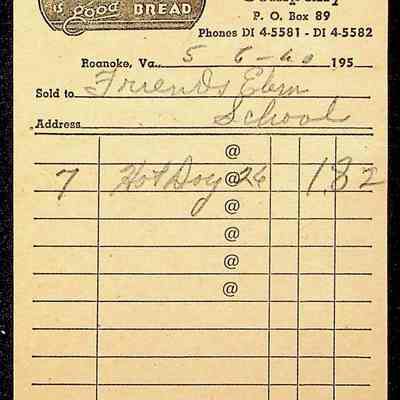 is good BREAD
Company
P. O. Box 89
Phones DI 4-5581 - DI 4-5582
Roanoke, Va., 5 6-60 195
Sold to Friends Elem
School
Address
@
7 Hot Dog @ 26 1.82
@
@
@
@